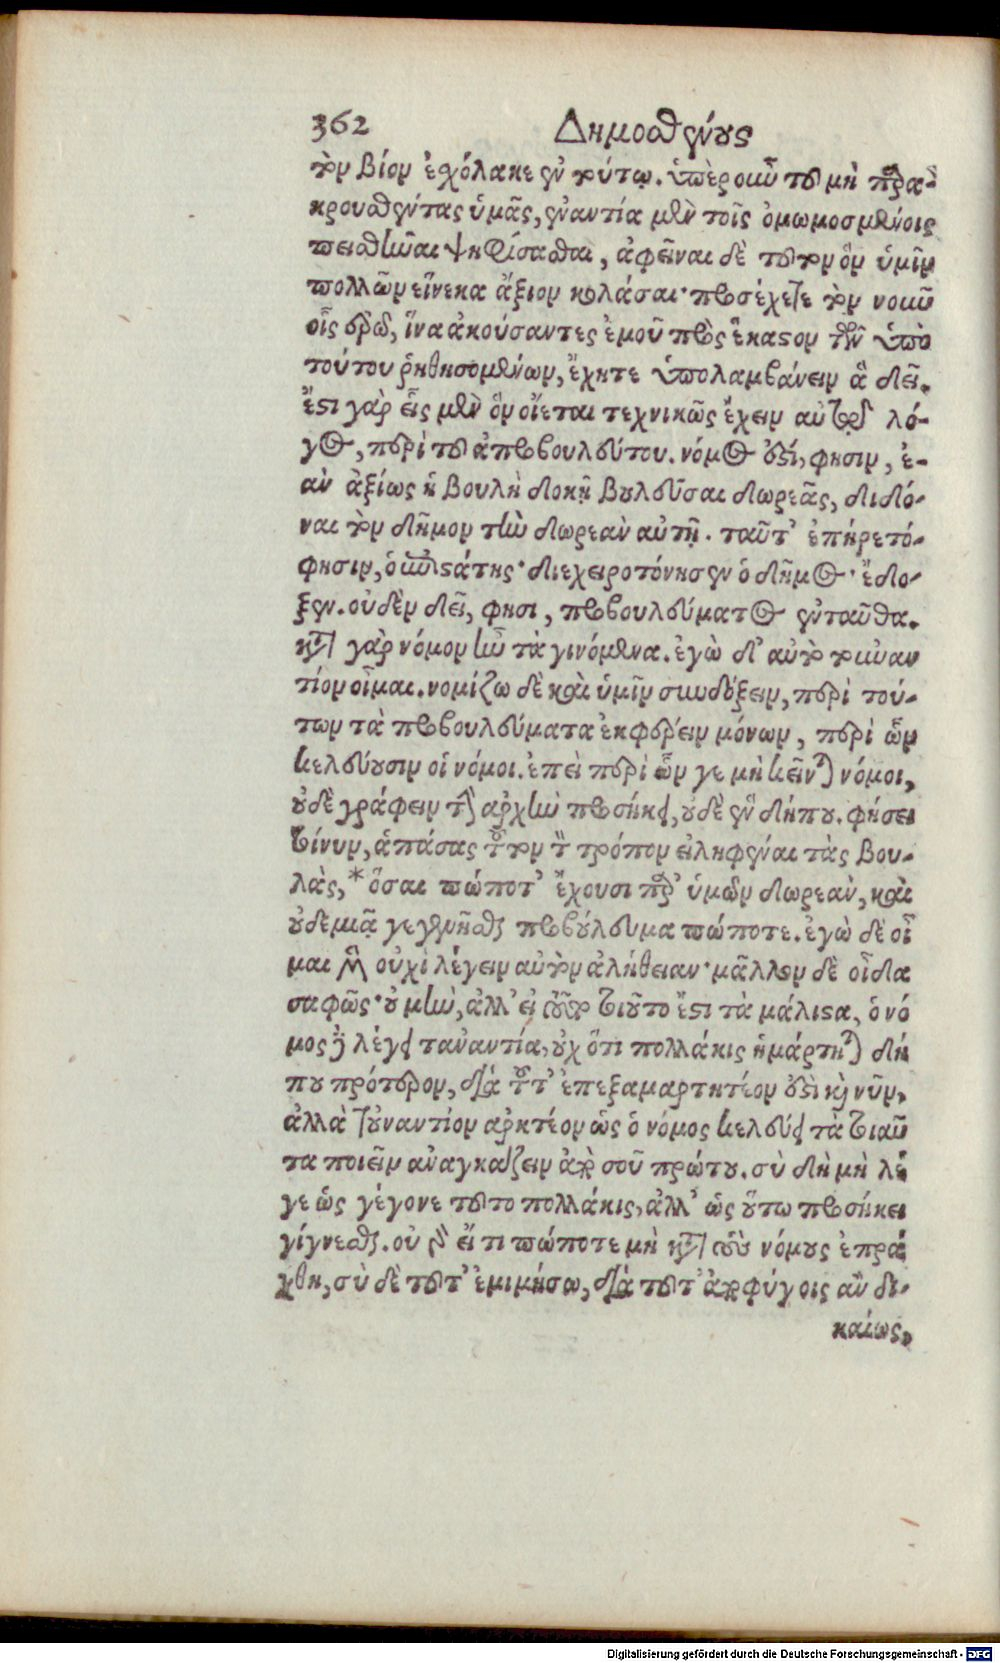 362 Δημοσθένους
τὸν βίον ἐσχόλακεν ἐν τούτῳ. ὑπὲρ οὖν τοῦ μὴ παρα-
κρουσθέντας ὑμᾶς, ἐναντία μὲν τοῖς ὀμωμοσμένοις
πεισθῆναι ψηφίσασθαι, ἀφεῖναι δὲ τοῦτον ὃν ὑμῖν
πολλῶν εἵνεκα ἄξιον κολάσαι· προσέχετε τὸν νοῦν
οἷς ἐρῶ, ἵνα ἀκούσαντες ἐμοῦ πρὸς ἕκαστον τῶν ὑπὸ
τούτου ῥηθησομένων, ἔχητε ὑπολαμβάνειν ἃ δεῖ.
ἔστι γὰρ εἷς μὲν ὃν οἴεται τεχνικῶς ἔχειν αὐτῷ λό-
γος, περὶ τοῦ ἀπροβουλεύτου. νόμος ἐστί, φησιν, ἐ-
ὰν ἀξίως ἡ βουλὴ δοκῇ βουλεῦσαι δωρεᾶς, διδό-
ναι τὸν δῆμον τὴν δωρεὰν αὐτῇ. ταῦτ' ἐπήρετό-
φησιν, ὁ ἐπιστάτης· διεχειροτόνησεν ὁ δῆμος· ἔδο-
ξεν. οὐδὲν δεῖ, φησι, προβουλεύματος ἐνταῦθα.
κατὰ γὰρ νόμον ἦν τὰ γινόμενα. ἐγὼ δ' αὐτὸ τοὐναν
τίον οἶμαι. νομίζω δὲ καὶ ὑμῖν συνδόξειν, περὶ τού-
των τὰ προβουλεύματα ἐκφέρειν μόνων, περὶ ὧν
κελεύουσιν οἱ νόμοι. ἐπεὶ περὶ ὧν γε μὴ κεῖνται νόμοι,
οὐδὲ γράφειν τὴν ἀρχὴν προσήκει, οὐδὲ ἓν δήπου. φήσει
τοίνυν, ἁπάσας τοῦτον τὸν τρόπον εἰληφέναι τὰς βου-
λὰς,* ὅσαι πώποτ' ἔχουσι παρ' ὑμῶν δωρεὰν, καὶ
οὐδεμιᾷ γεγενῆσθαι προβούλευμα πώποτε. ἐγὼ δὲ οἶ
μαι μὲν οὐχὶ λέγειν αὐτὸν ἀλήθειαν· μᾶλλον δὲ οἶδα
σαφῶς· οὐ μὴν, ἀλλ' εἰ τοῦτο τοιοῦτο ἔστι τὰ μάλιστα, ὁ νό
μος δὲ λέγει ταναντία, οὐχ ὅτι πολλάκις ἡμάρτηται δή
που πρότερον, διὰ τοῦτ' ἐπεξαμαρτητέον ἐστὶ καὶ νῦν,
ἀλλὰ τοὐναντίον ἀρκτέον ὡς ὁ νόμος κελεύει τὰ τοιαῦ
τα ποιεῖν ἀναγκάζειν ἀπὸ σοῦ πρώτου. σὺ δὴ μὴ λέ
γε ὡς γέγονε τοῦτο πολλάκις, ἀλλ' ὡς οὕτω προσήκει
γίγνεσθαι. οὐ γὰρ εἴ τι πώποτε μὴ κατὰ τοὺς νόμους ἐπρά
χθη, σὺ δὲ τοῦτ' ἐμιμήσω, διὰ τοῦτ' ἀποφύγοις ἂν δι-
καίως,
Digitalisierung gefördert durch die Deutsche Forschungsgemeinschaft - DFG